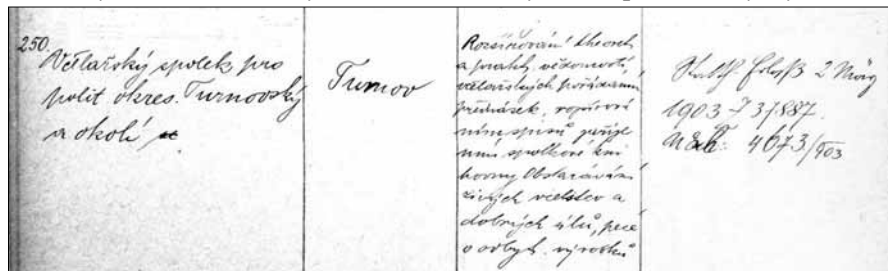 250.
Včelařský spolek pro
polit okres. Turnovský
a okolí
Turnov
Rozšiřování theoret
a prakt. vědomostí
včelařských pořádáním
přednášek, rozšiřová
ním spisů půjče
ním spolkové kni
hovny Obstarávání
živých včelstev a
dobrých úlů, péče
o odbyt. výrobků
Statth. Erlaß 2 März
1903 Z 31887.
4673/903